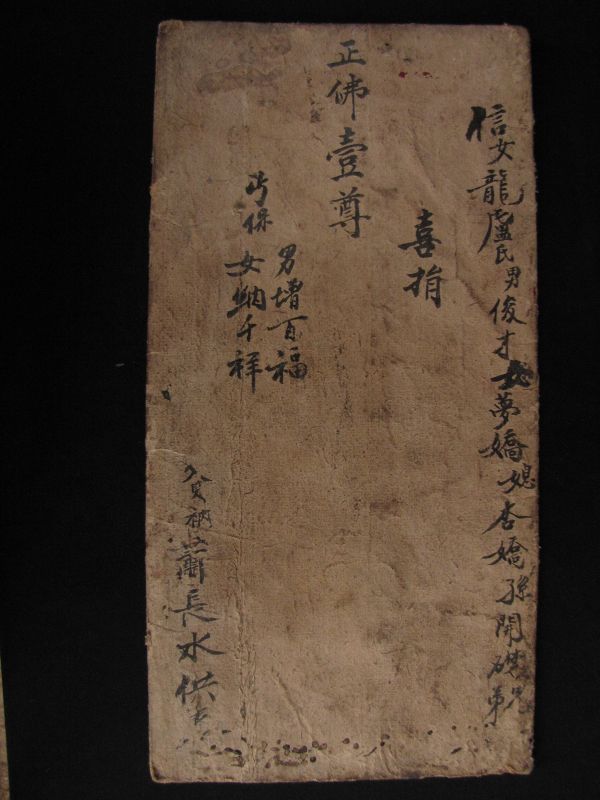 信女龍盧氏男俊才女夢嬌媳杏嬌孫開礎兄弟
喜捐
正佛壹尊
男增百福
叩保
女納千祥
貧衲蕭長水供